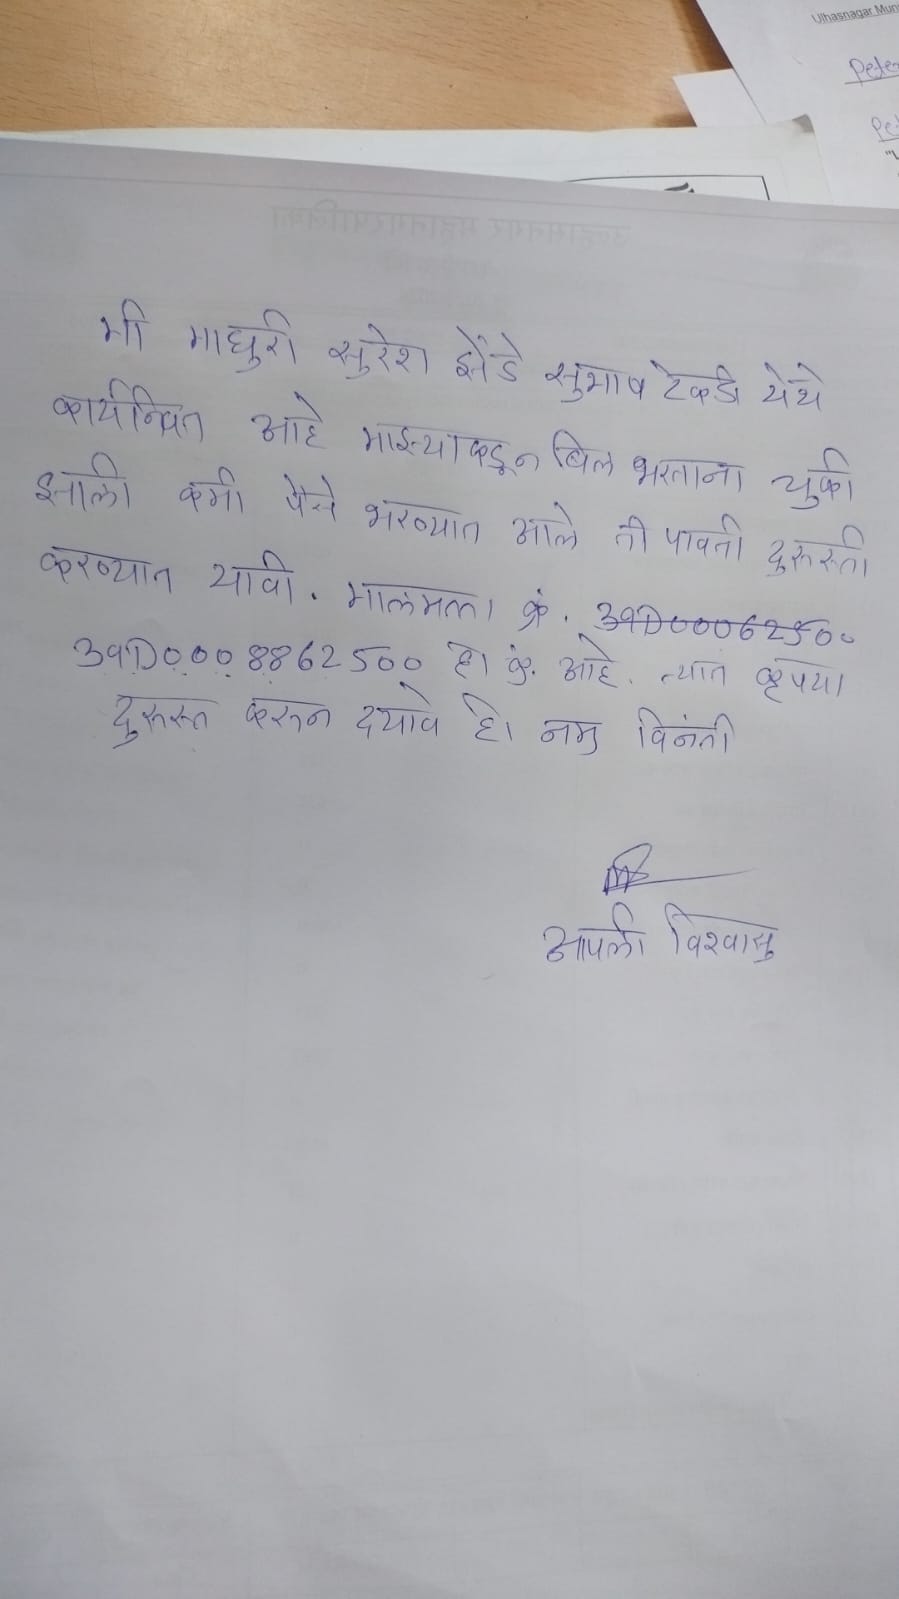 Ulhasnagar Mun
मी माधुरी सुरेश झेंडे सुभाष टेकडी येथे
कार्यन्वित आहे माझ्याकडून बिल भरताना चुकी
झाली कमी पैसे भरण्यात आले ती पावती दुरूस्ती
करण्यात यावी. मालमत्ता क्रं. 39D00062500
39D0008862500 हा क्रं. आहे. त्यात कृपया
दुरूस्त करून दयावे ही नम्र विनंती
आपली विश्वासु